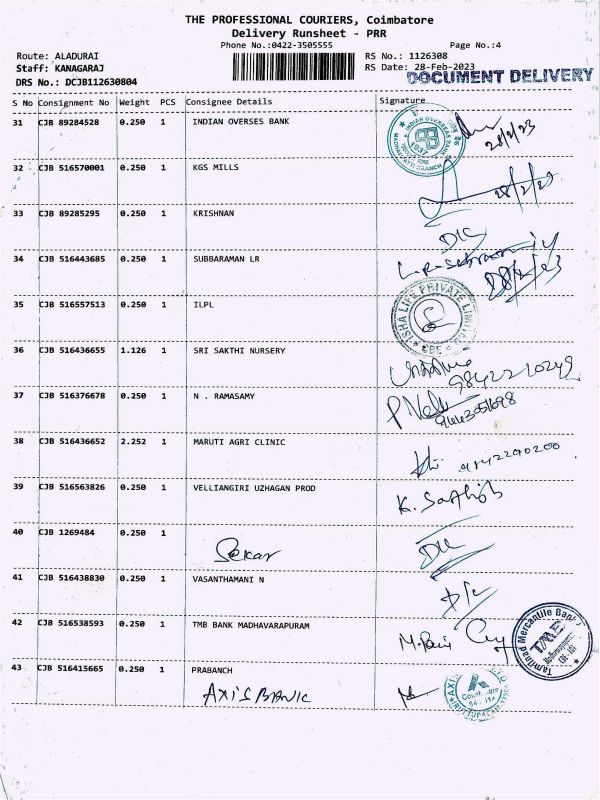 THE PROFESSIONAL COURIERS, Coimbatore
Delivery Runsheet - PRR
Phone No.:0422-3505555 Page No.:4
Route: ALADURAI RS No.: 1126308
Staff: KANAGARAJ RS Date: 28-Feb-2023
DRS No.: DCJB112630804 DOCUMENT DELIVERY
S No Consignment No Weight PCS Consignee Details Signature
31 CJB 89284528 0.250 1 INDIAN OVERSES BANK 28/2/23
32 CJB 516570001 0.250 1 KGS MILLS
33 CJB 89285295 0.250 1 KRISHNAN
34 CJB 516443685 0.250 1 SUBBARAMAN LR
35 CJB 516557513 0.250 1 ILPL ISHA LIFE PRIVATE LIMITED
36 CJB 516436655 1.126 1 SRI SAKTHI NURSERY
37 CJB 516376678 0.250 1 N . RAMASAMY
38 CJB 516436652 2.252 1 MARUTI AGRI CLINIC
39 CJB 516563826 0.250 1 VELLIANGIRI UZHAGAN PROD
40 CJB 1269484 0.250 1
Sekar
41 CJB 516438830 0.250 1 VASANTHAMANI N
42 CJB 516538593 0.250 1 TMB BANK MADHAVARAPURAM Tamilnad Mercantile Bank
43 CJB 516415665 0.250 1 PRABANCH
AXIS BANK